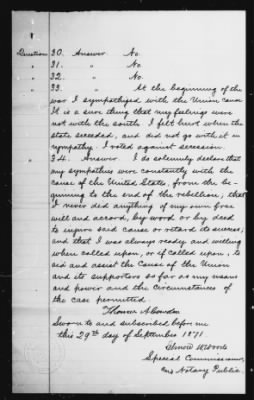 Question 30. Answer No.
" 31. " No.
" 32. " No.
" 33. " At the beginning of the
war I sympathized with the Union cause
It is a sure thing that my feelings were
not with the south I felt hurt when the
state seceded, and did not go with it in
sympathy. I voted against secession.
34. Answer. I do solemnly declare that
my sympathies were constantly with the
cause of the United States, from the be-
ginning to the end of the rebellion, that
I never did anything of my own free
will and accord, by word or by deed
to injure said cause or retard its success,
and that I was always ready and willing
when called upon, or if called upon, to
aid and assist the Cause of the Union
and its supporters so far as my means
and power and the circumstances of
the case permitted.
Thomas
Sworn to and subscribed before me
this 29th day of September 1871.
Special Commissioner,
Notary Public